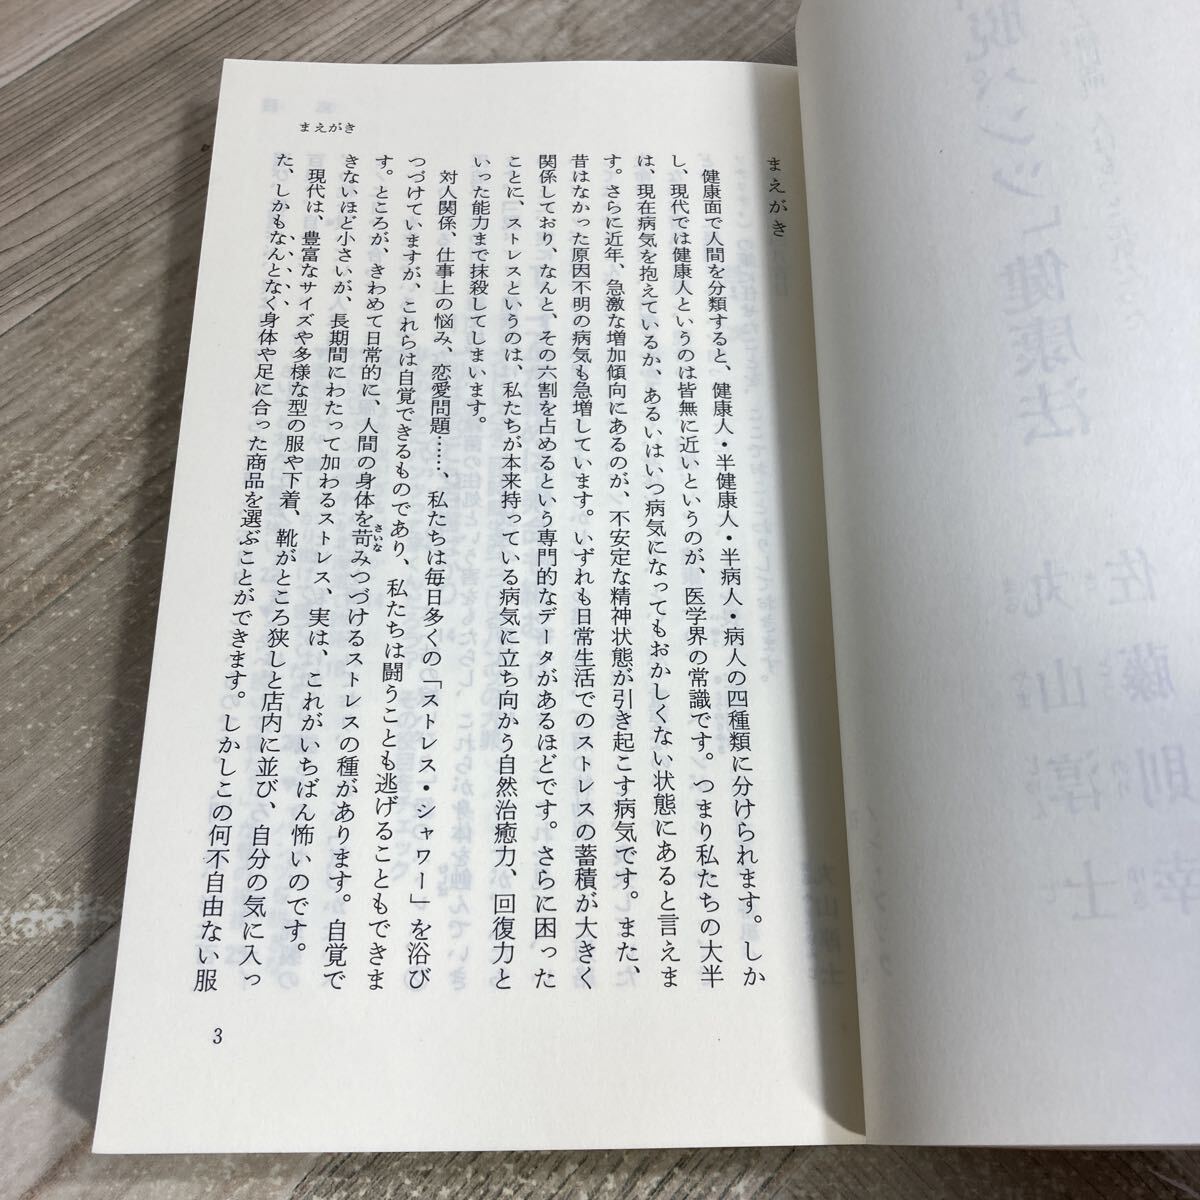 まえがき
まえがき
健康面で人間を分類すると、健康人・半健康人・半病人・病人の四種類に分けられます。しか
し、現代では健康人というのは皆無に近いというのが、医学界の常識です。つまり私たちの大半
は、現在病気を抱えているか、あるいはいつ病気になってもおかしくない状態にあると言えま
す。さらに近年、急激な増加傾向にあるのが、不安定な精神状態が引き起こす病気です。また、
昔はなかった原因不明の病気も急増しています。いずれも日常生活でのストレスの蓄積が大きく
関係しており、なんと、その六割を占めるという専門的なデータがあるほどです。さらに困った
ことに、ストレスというのは、私たちが本来持っている病気に立ち向かう自然治癒力、回復力と
いった能力まで抹殺してしまいます。
対人関係、仕事上の悩み、恋愛問題……、私たちは毎日多くの「ストレス・シャワー」を浴び
つづけていますが、これらは自覚できるものであり、私たちは闘うことも逃げることもできま
す。ところが、きわめて日常的に、人間の身体を苛みつづけるストレスの種があります。自覚で
きないほど小さいが、長期間にわたって加わるストレス、実は、これがいちばん怖いのです。
現代は、豊富なサイズや多様な型の服や下着、靴がところ狭しと店内に並び、自分の気に入っ
た、しかもなんとなく身体や足に合った商品を選ぶことができます。しかしこの何不自由ない服
3
脱パンツ健康法
丸山淳士
佐藤則幸